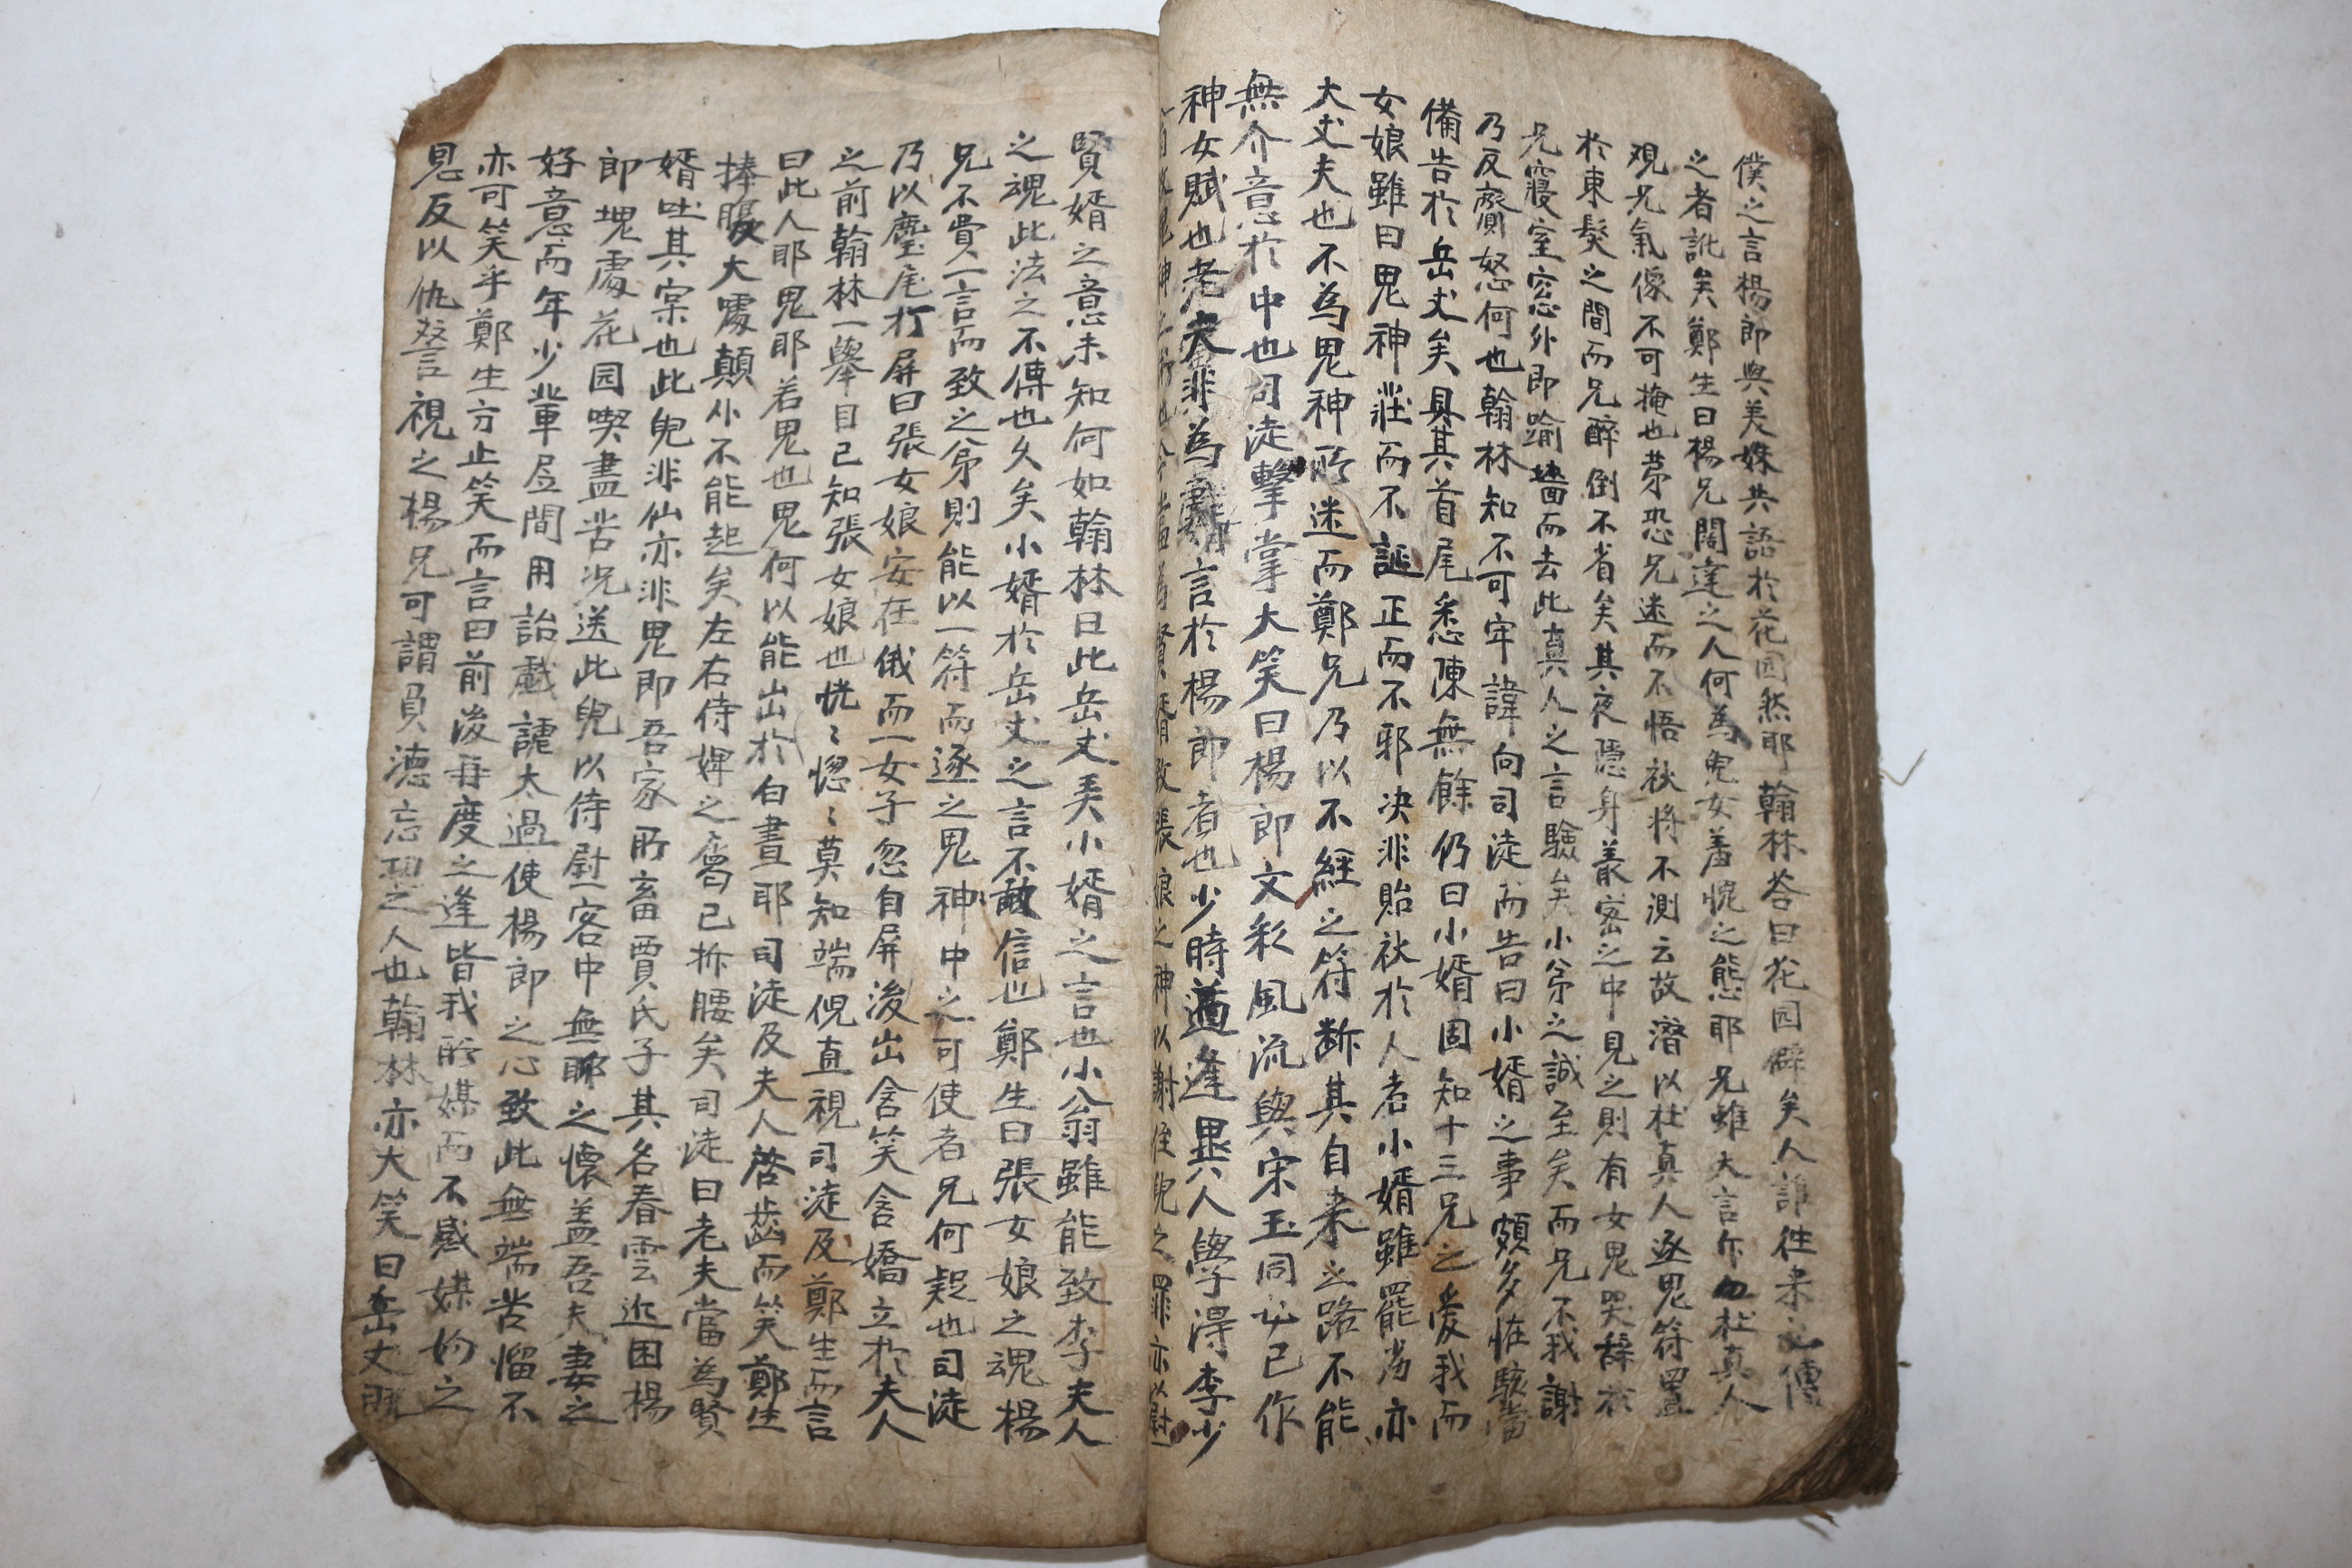 僕之言楊郎與美姝共語於花園然耶翰林答曰花园僻矣人誰往来之傳
之者訛矣鄭生曰楊兄闊達之人何為兒女羞愧之態耶兄雖大言斥杜真人
观兄氣像不可掩也弟恐兄迷而不悟祅将不測云故潛以杜真人逐鬼符置
於束髮之間而兄醉倒不省矣其夜隱身叢密之中見之則有女鬼哭辞於
兄寢室窓外即踰墻而去此真人之言驗矣小弟之誠至矣而兄不我謝
乃反齎怒何也翰林知不可牢諱向司徒而告曰小婿之事頗多恠駭當
備告於岳丈矣具其首尾悉陳無餘仍曰小婿固知十三兄之愛我而
女娘雖曰鬼神莊而不誕正而不邪决非貽祅於人者小婿雖罷劣亦
大丈夫也不為鬼神所迷而鄭兄乃以不經之符断其自来之路不能
無介意於中也司徒擊掌大笑曰楊郎文彩風流與宋玉同必已作
神女賦也老夫非為戱言於楊郎者也少時適逢異人學淂李少
翁致鬼神之術也今當為賢婿致張娘之神以謝侄兒之罪亦以慰
賢婿之意未知何如翰林曰此岳丈弄小婿之言也少翁雖能致李夫人
之魂此法之不傳也久矣小婿於岳丈之言不敢信也鄭生曰張女娘之魂楊
兄不費一言而致之弟則能以一符而逐之鬼神中之可使者兄何疑也司徒
乃以麈尾打屏曰張女娘安在俄而一女子忽自屏後出含笑含嬌立於夫人
之前翰林一舉目已知張女娘也恍〻惚〻莫知端倪直視司徒及鄭生而言
曰此人耶鬼耶若鬼也鬼何以能出於白晝耶司徒及夫人啓齒而笑鄭生
捧腹大噱顛仆不能起矣左右侍婢之屬已折腰矣司徒曰老夫當為賢
婿吐其实也此兒非仙亦非鬼即吾家所畜賈氏子其名春雲近因楊
郎塊處花园喫盡苦况送此兒以侍慰客中無聊之懷盖吾夫妻之
好意而年少輩居間用詒戱謔太過使楊郎之心致此無端苦惱不
亦可笑乎鄭生方止笑而言曰前後再度之逢皆我所媒而不感媒妁之
恩反以仇讐視之楊兄可謂負德忘恩之人也翰林亦大笑曰岳丈既